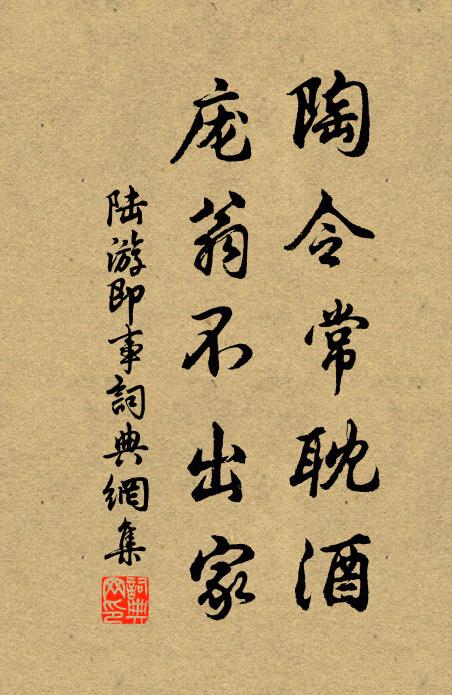 陶令常耽酒
庞翁不出家
陆游即事詞典網集
詞典网印